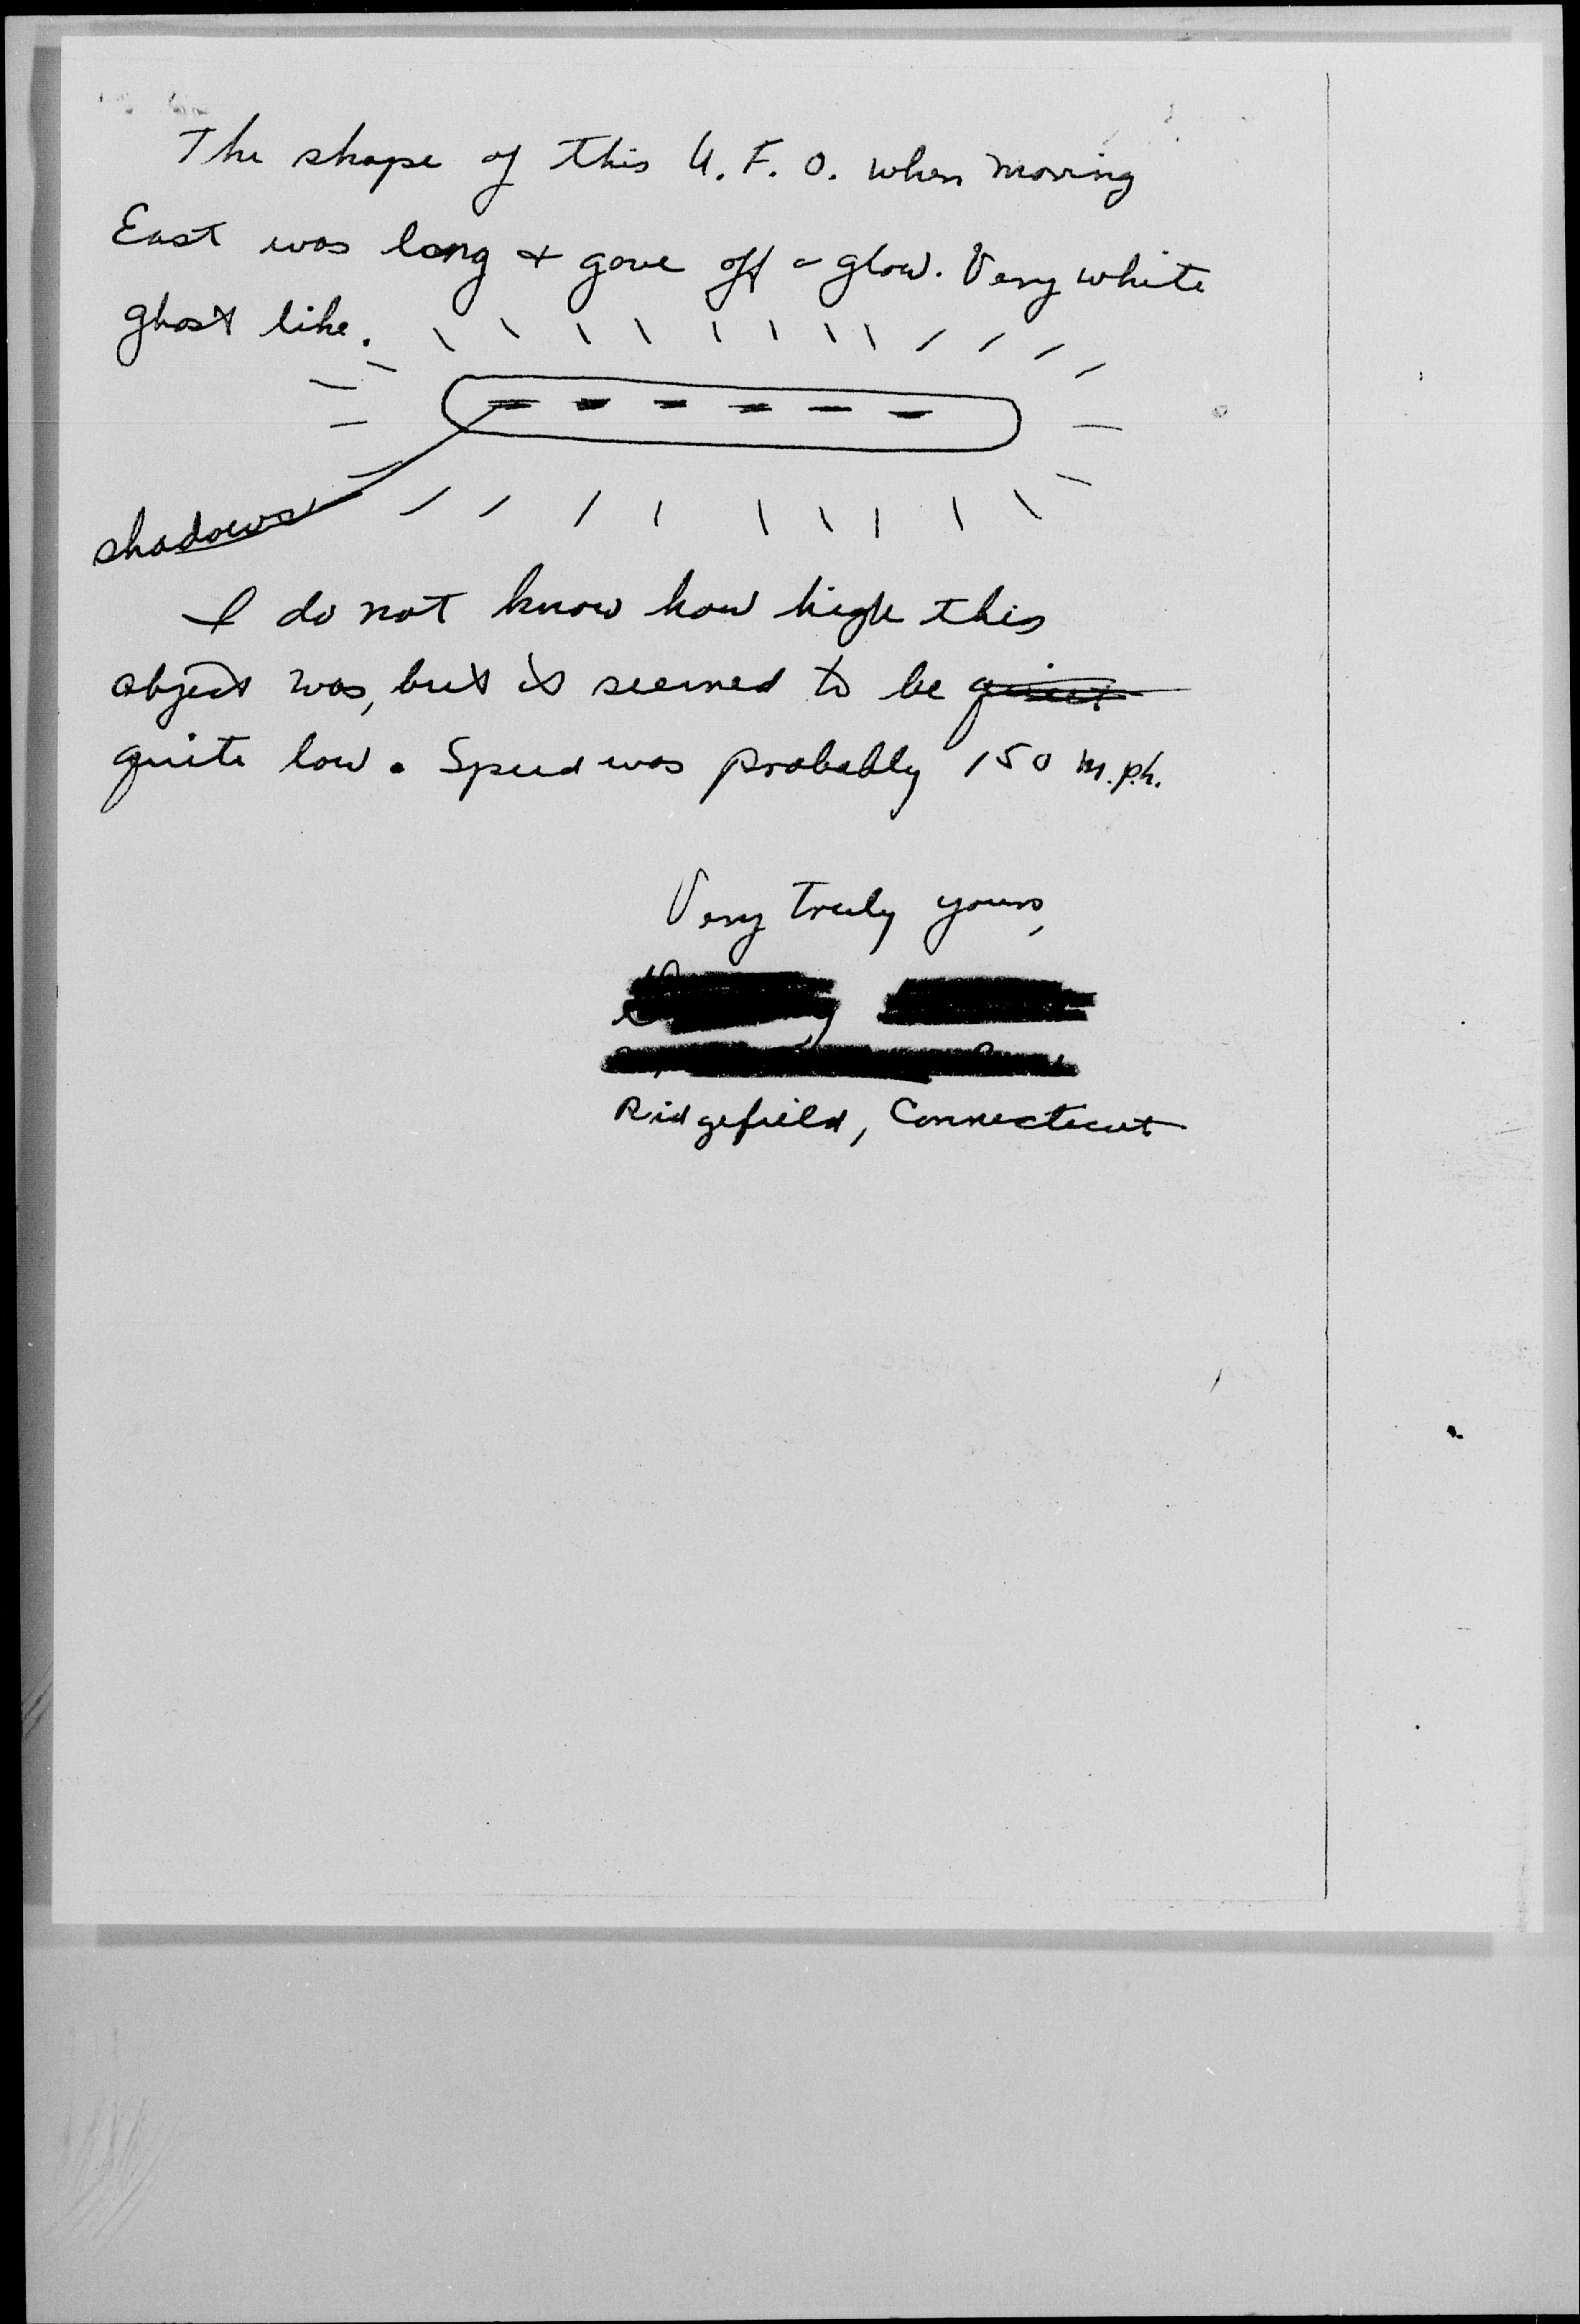 The shape of this U.F.O. when moving
East was long & gave off a glow. Very white
ghost like.
shadows
I do not know how high this
object was, but it seemed to be
quite low. Speed was probably 150 m.p.h.
Very truly yours,
Ridgefield, Connecticut